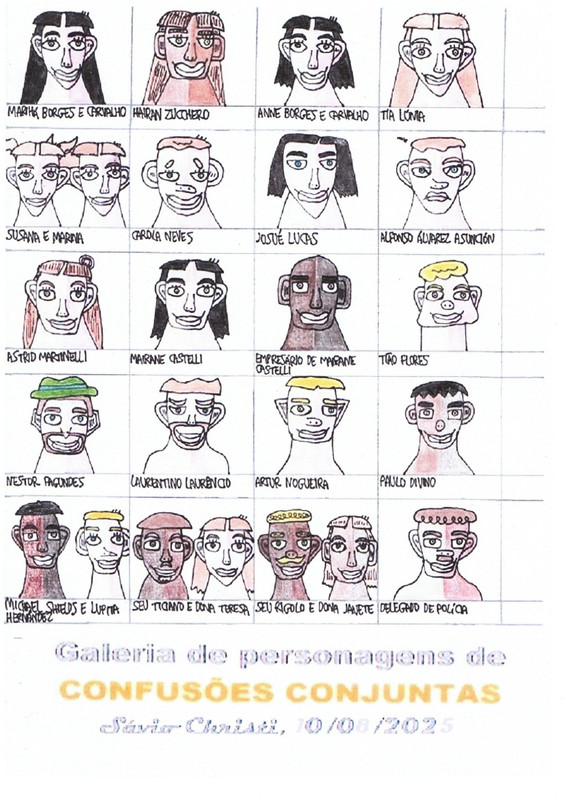 MARTHA BORGES E CARVALHO
HAIRAN ZUCCHERO
ANNE BORGES E CARVALHO
TIA LÔNIA
SUSANA E MARINA
CAROLA NEVES
JOSUÉ LUCAS
ALFONSO ÁLVAREZ ASUNCIÓN
ASTRID MARTINELLI
MAIRANE CASTELLI
EMPRESÁRIO DE MAIRANE
CASTELLI
TIÃO FLORES
NESTOR FAGUNDES
LAURENTINO LAURÊNCIO
ARTUR NOGUEIRA
PAULO DIVINO
MICHAEL SHIELDS E LUPITA
HERNÁNDEZ
SEU TICIANO E DONA TERESA
SEU RIGOLO E DONA JANETE
DELEGADO DE POLÍCIA
Galeria de personagens de
CONFUSÕES CONJUNTAS
Sávio Christi, 10/08/2025